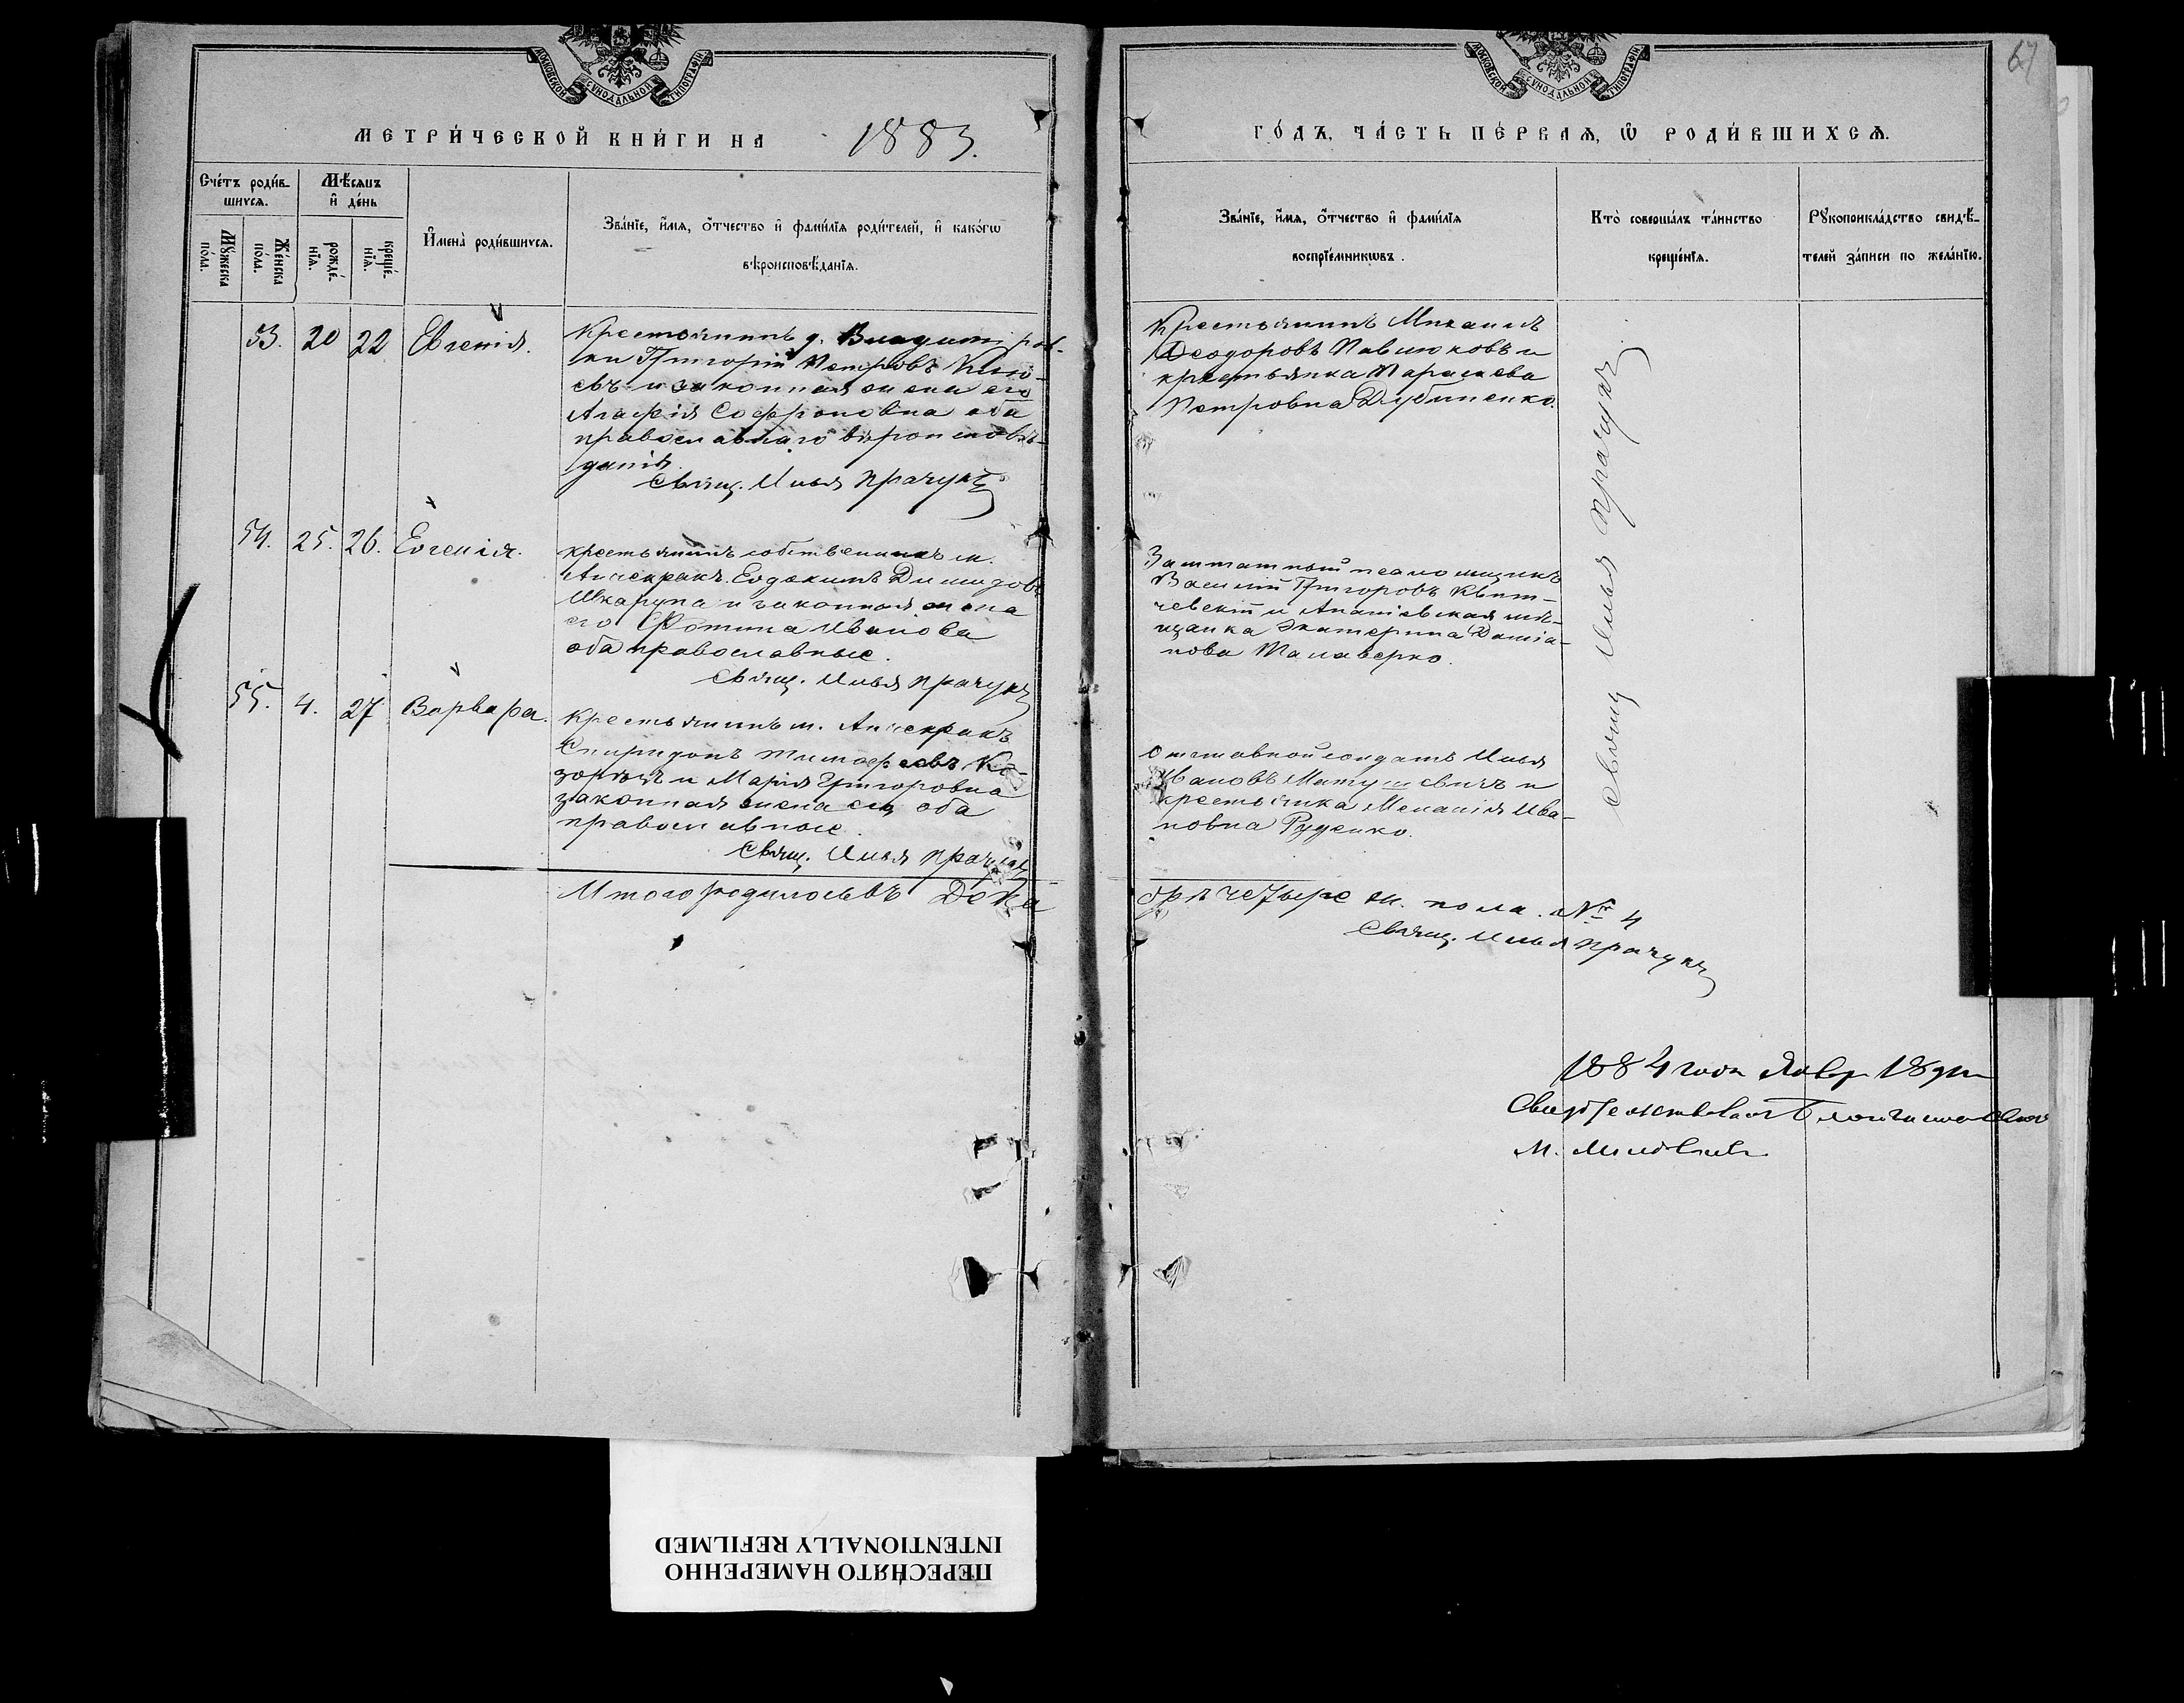 МОСКОВСКОЙ СѴНОДАЛЬНОЙ ТИПОГРАФІИ
МЕТРИ́ЧЕСКОЙ КНИ́ГИ НА 1883.
Сче́тъ роди́в-
шихся.
Мѣ́сяцъ
и҆ де́нь
Мꙋ́жеска по́ла.
Же́нска по́ла.
рожде́-
нїѧ.
креще́-
нїѧ.
И҆мена̀ роди́вшихсѧ.
Зва́нїе, и҆́мѧ, ѻ҆́тчество и҆ фамѝлїѧ роди́телей, и҆ како́гѡ
вѣроисповѣ́данїѧ.
53. 20 22 Евгенія.
Крестьянинъ д. Владиміров-
ки Григорій Петровъ
евъ и законная жена его
Агафія Софроновна оба
православнаго вѣроисповѣ-
данія.
Свящ. Илья Прачукъ
54. 25. 26. Евгенія.
крестьянинъ собственникъ м.
Анчекракъ Евдокимъ Демидовъ
Шкарупа и законная жена
его Фотина Иванова
оба православные.
Свящ. Илья Прачукъ
55. 4. 27 Варвара.
Крестьянинъ м. Анчекракъ
Спиридонъ Тимофеевъ Ко-
и Марія Григоровна
законная жена его, оба
православные.
Свящ. Илья Прачукъ
Итого родилось въ Дека
67
МОСКОВСКОЙ СѴНОДАЛЬНОЙ ТИПОГРАФІИ
ГО́ДЪ, ЧА́СТЬ ПЕ́РВАЯ, Ѡ҆ РОДИ́ВШИХСЯ.
Зва́нїе, и҆́мѧ, ѻ҆́тчество и҆ фамѝлїѧ
воспрїе́мникѡвъ.
Кто̀ соверша́лъ та́инство
креще́нїѧ.
Рꙋкоприкла́дство свидѣ́-
телей за́писи по жела́нїю.
Крестьянинъ Михаилъ
Феодоровъ Павлюковъ и
крестьянка Параскева
Петровна Дубиненко.
Заштатный псаломщикъ
Василій Григоровъ Квит-
чевскій и Ананіевская мѣ-
щанка Екатерина Даміа-
нова Малаверко.
Отставной солдатъ Илья
Ивановъ Матушевичъ и
крестьянка Меланія Ива-
новна Руденко.
Свящ Илья Прачукъ
брѣ четыре ж. пола. № 4
Свящ. Илья Прачукъ
1884 года Янвр 18 дня
Свидѣтельствовалъ
М.
ПЕРЕСНЯТО НАМЕРЕННО
INTENTIONALLY REFILMED